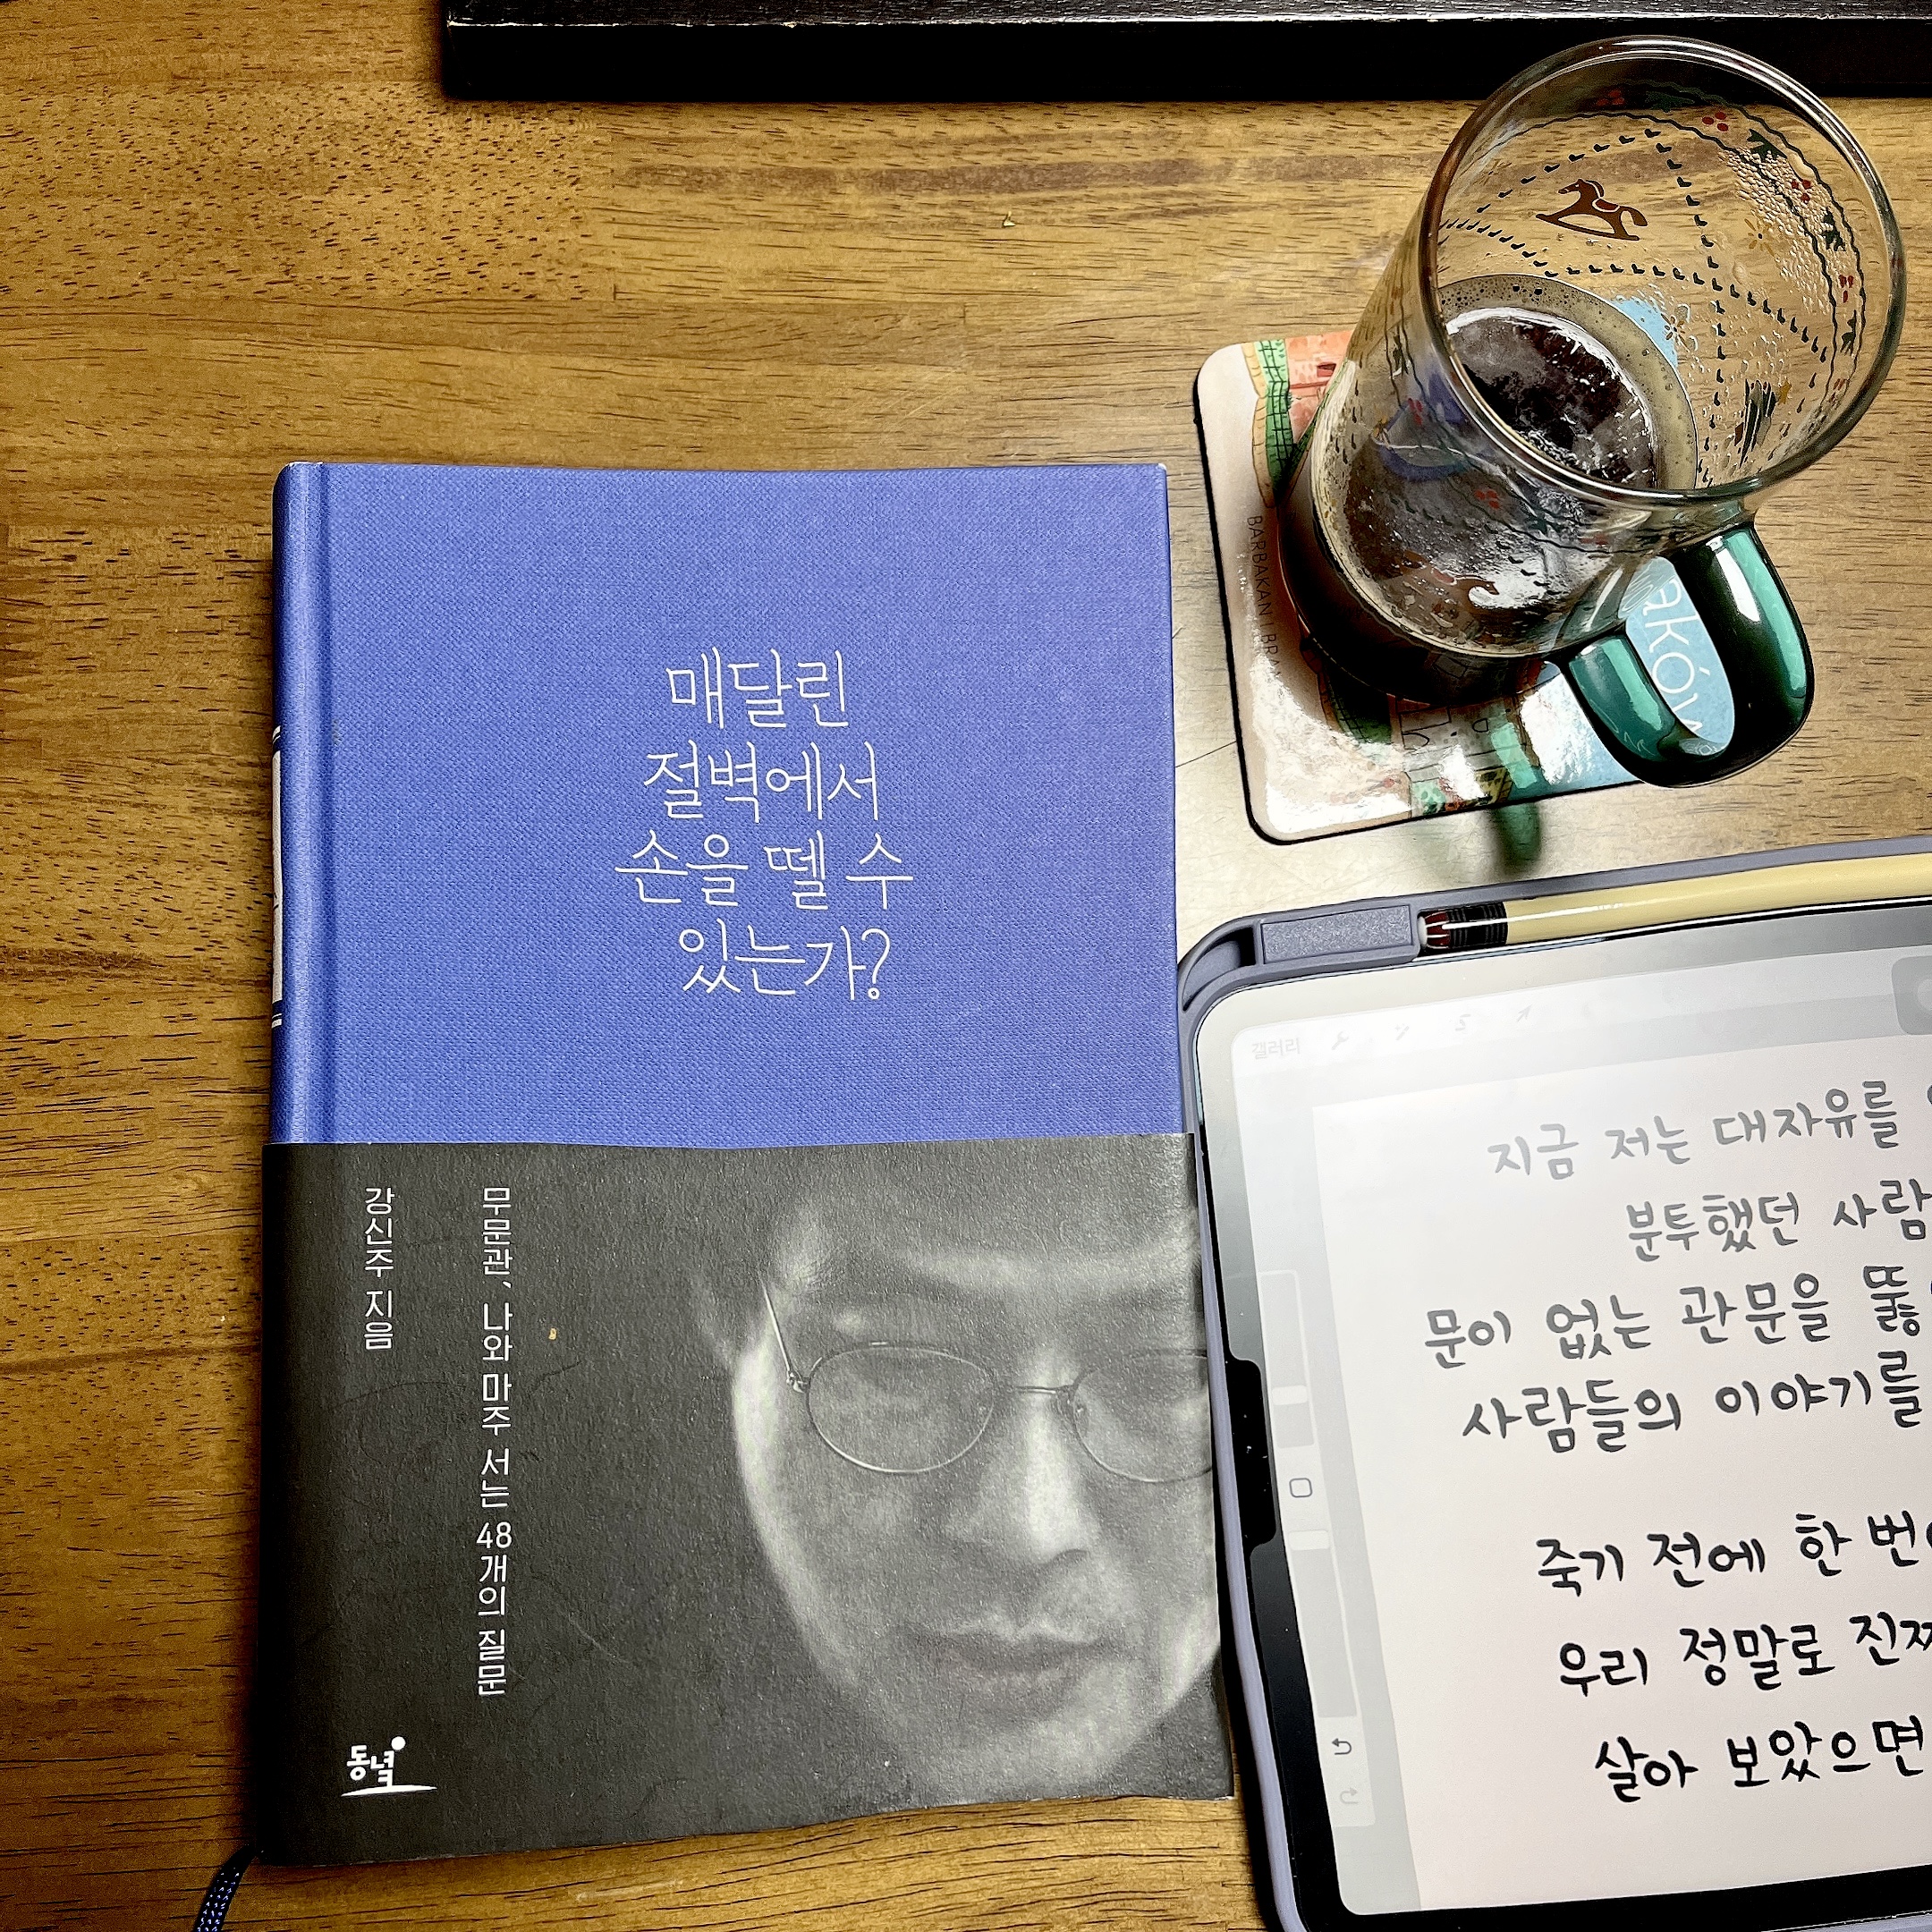 매달린
절벽에서
손을 뗄 수
있는가?
무문관, 나와 마주 서는 48개의 질문
강신주 지음
동녘
BARBAKAN
갤러리
지금 저는 대자유를
분투했던 사람
문이 없는 관문을 뚫
사람들의 이야기를
죽기 전에 한 번
우리 정말로 진짜
살아 보았으면